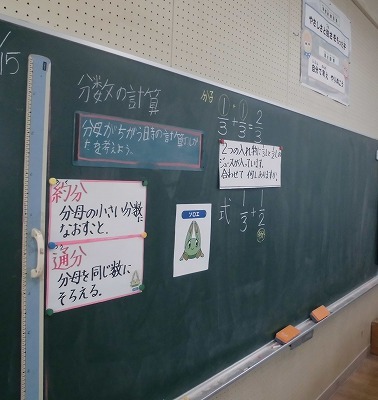 /15
分数の計算
分子
1/3+1/3=2/3
分母がちがう時の計算のしか
たを考えよう。
2つの入れ物に
ジュースが入っています。
合わせて何Lありますか。
式 1/3+1/2
約分
分母の小さい分数に
なおすこと。
通分
分母を同じ数に
そろえる。
ソロエ